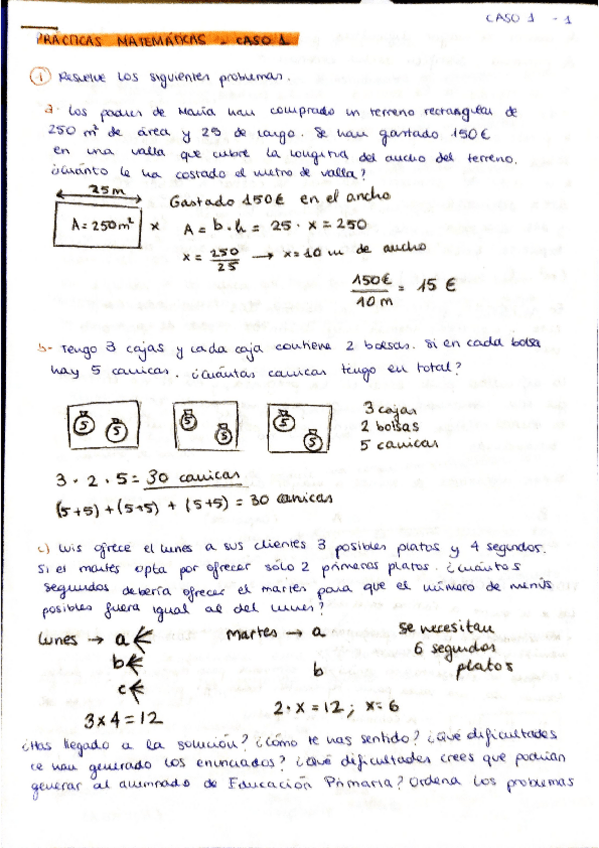 CASO 1 - 1
PRÁCTICAS MATEMÁTICAS - CASO 1
① Resuelve los siguientes problemas.
a- Los padres de María han comprado un terreno rectangular de
250 m² de área y 25 de largo. Se han gastado 150€
en una valla que cubre la longitud del ancho del terreno.
¿Cuánto le ha costado el metro de valla?
25 m
Gastado 150€ en el ancho
A = 250 m² x
A = b·h = 25 · x = 250
x = 250/25 → x = 10 m de ancho
150€/10 m = 15 €
b- Tengo 3 cajas y cada caja contiene 2 bolsas. Si en cada bolsa
hay 5 canicas. ¿Cuántas canicas tengo en total?
5 5 5 5 5 5
3 cajas
2 bolsas
5 canicas
3 · 2 · 5 = 30 canicas
(5+5) + (5+5) + (5+5) = 30 canicas
c) Luis ofrece el lunes a sus clientes 3 posibles platos y 4 segundos.
Si el martes opta por ofrecer sólo 2 primeros platos. ¿Cuántos
segundos debería ofrecer el martes para que el número de menús
posibles fuera igual al del lunes?
lunes → a
b
c
3x4 = 12
Martes → a
b
2 · x = 12 ; x = 6
Se necesitan
6 segundos
platos
¿Has llegado a la solución? ¿Cómo te has sentido? ¿Qué dificultades
te han generado los enunciados? ¿Qué dificultades crees que podrían
generar al alumnado de Educación Primaria? Ordena los problemas